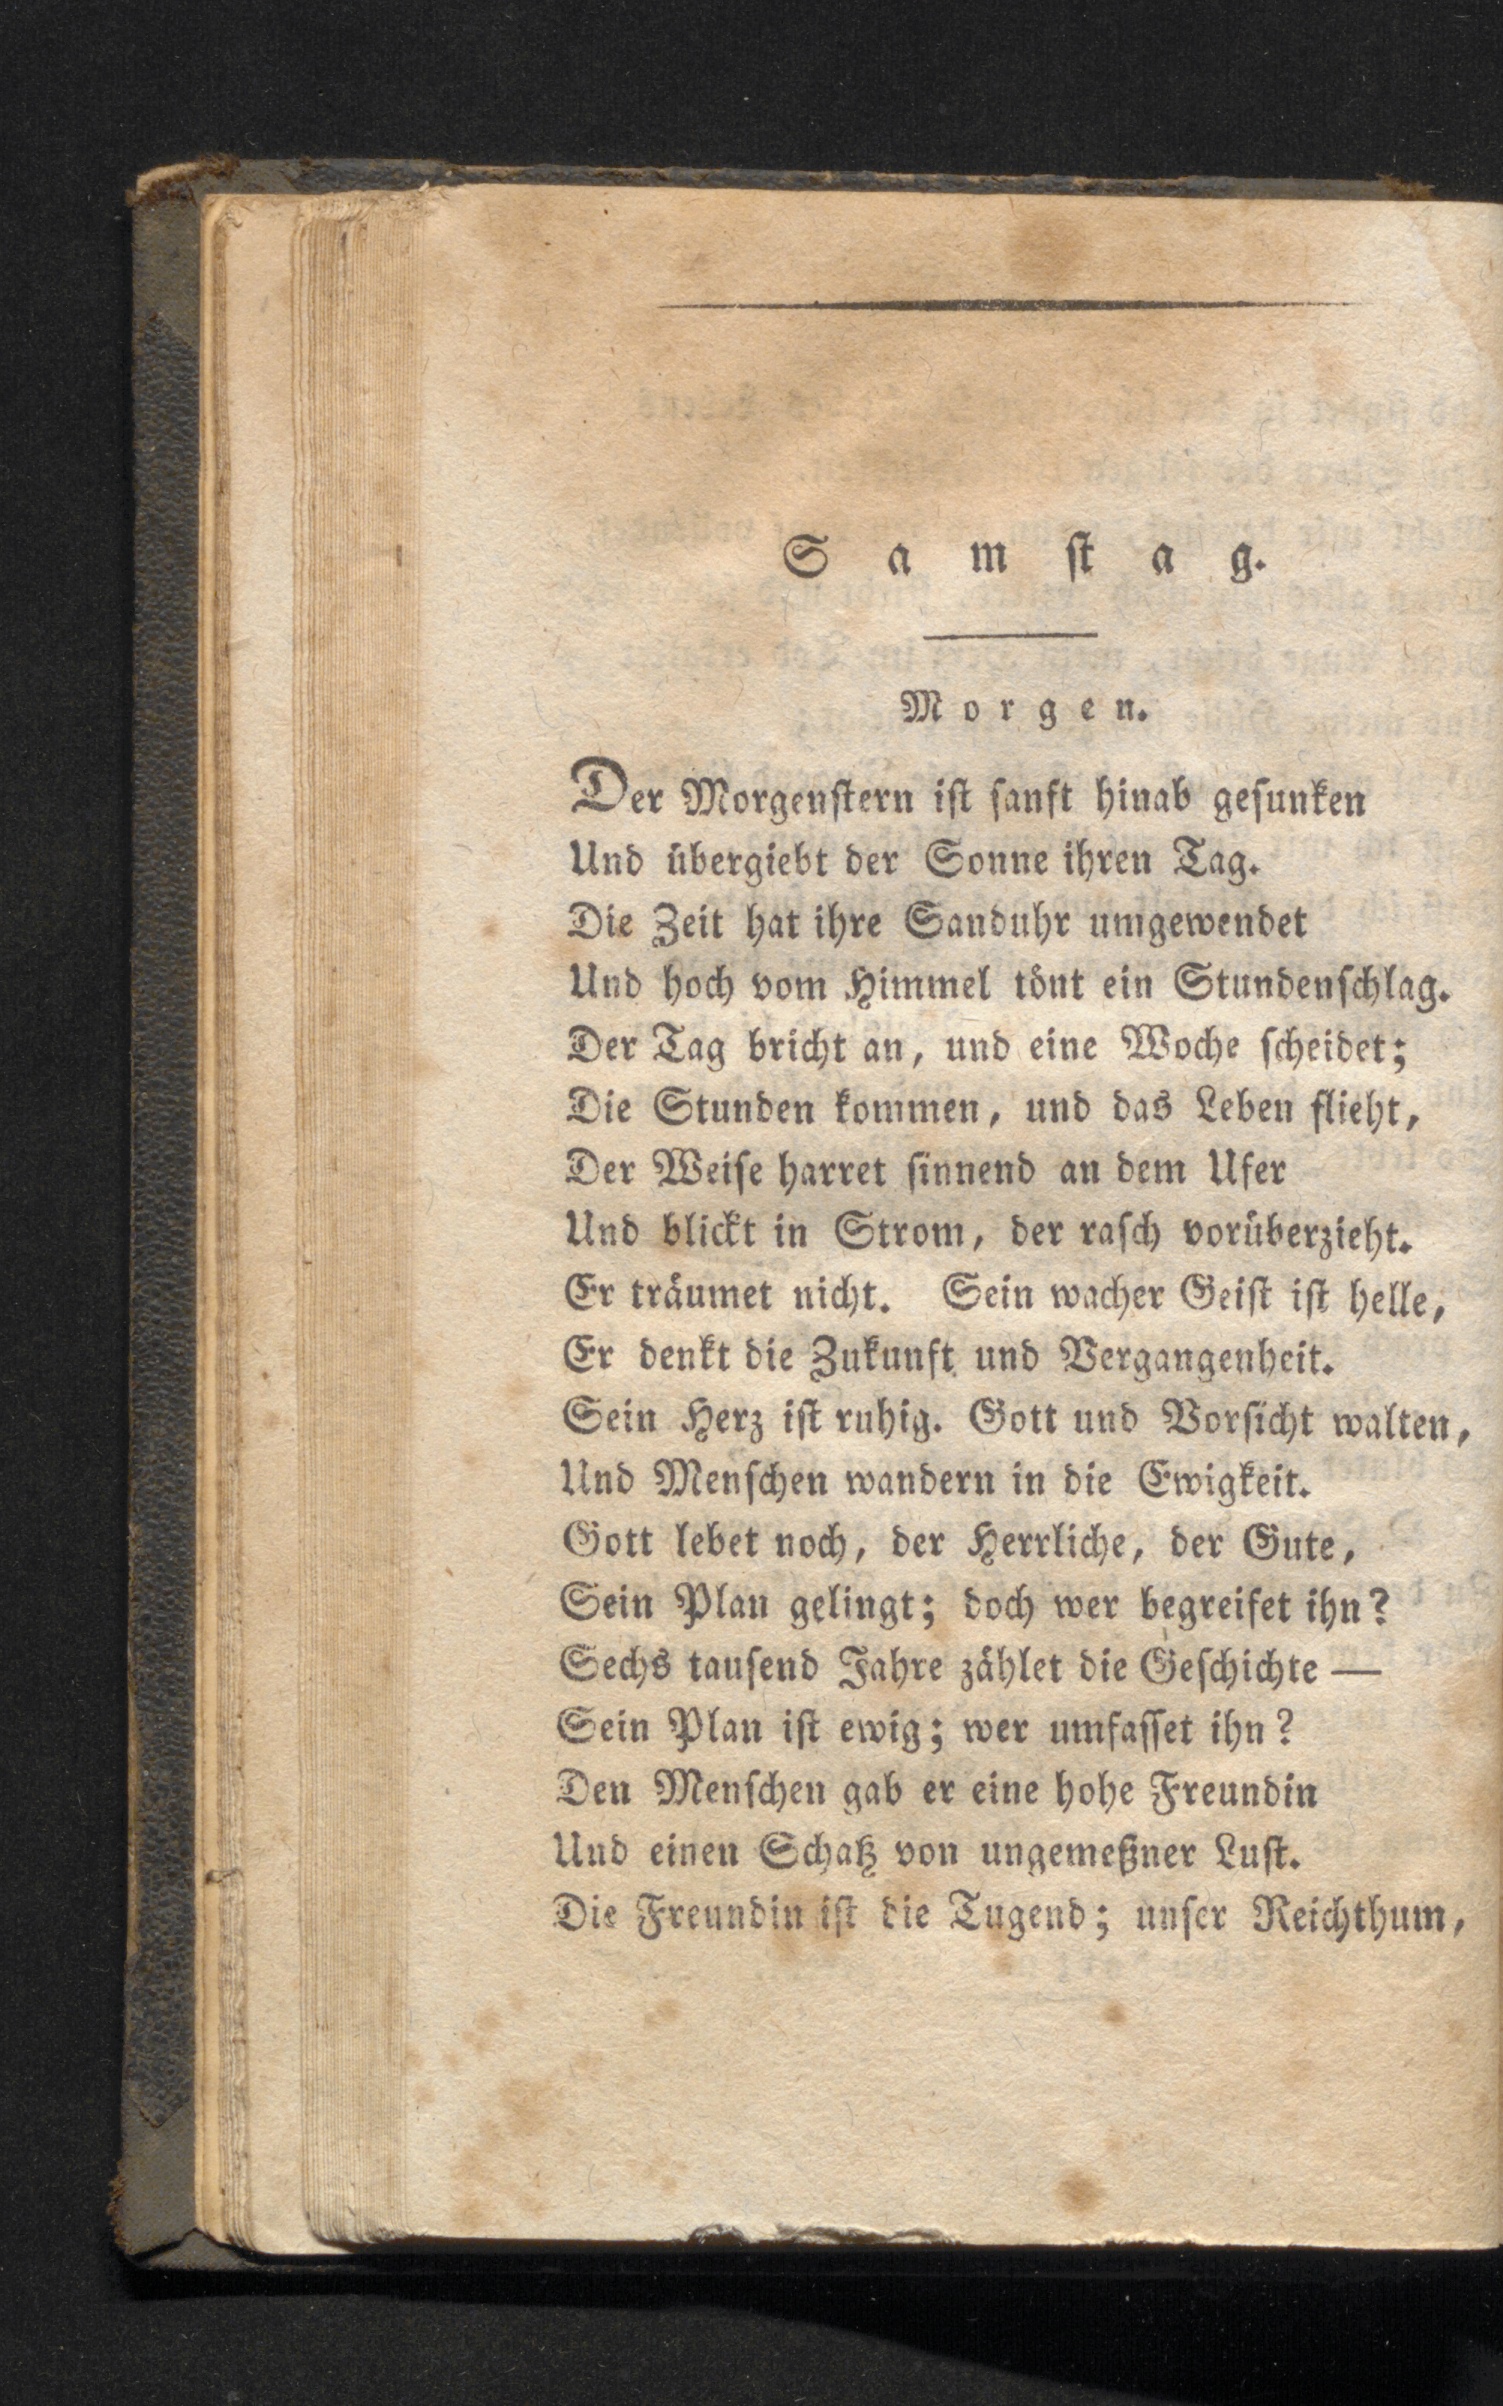 Samſtag.
Morgen.
Der Morgenſtern iſt ſanft hinab geſunken
Und übergiebt der Sonne ihren Tag.
Die Zeit hat ihre Sanduhr umgewendet
Und hoch vom Himmel tönt ein Stundenſchlag.
Der Tag bricht an, und eine Woche ſcheidet;
Die Stunden kommen, und das Leben flieht,
Der Weiſe harret ſinnend an dem Ufer
Und blickt in Strom, der raſch vorüberzieht.
Er träumet nicht. Sein wacher Geiſt iſt helle,
Er denkt die Zukunft und Vergangenheit.
Sein Herz iſt ruhig. Gott und Vorſicht walten,
Und Menſchen wandern in die Ewigkeit.
Gott lebet noch, der Herrliche, der Gute,
Sein Plan gelingt; doch wer begreifet ihn?
Sechs tauſend Jahre zählet die Geſchichte —
Sein Plan iſt ewig; wer umfaſſet ihn?
Den Menſchen gab er eine hohe Freundin
Und einen Schatz von ungemeßner Luſt.
Die Freundin iſt die Tugend; unſer Reichthum,